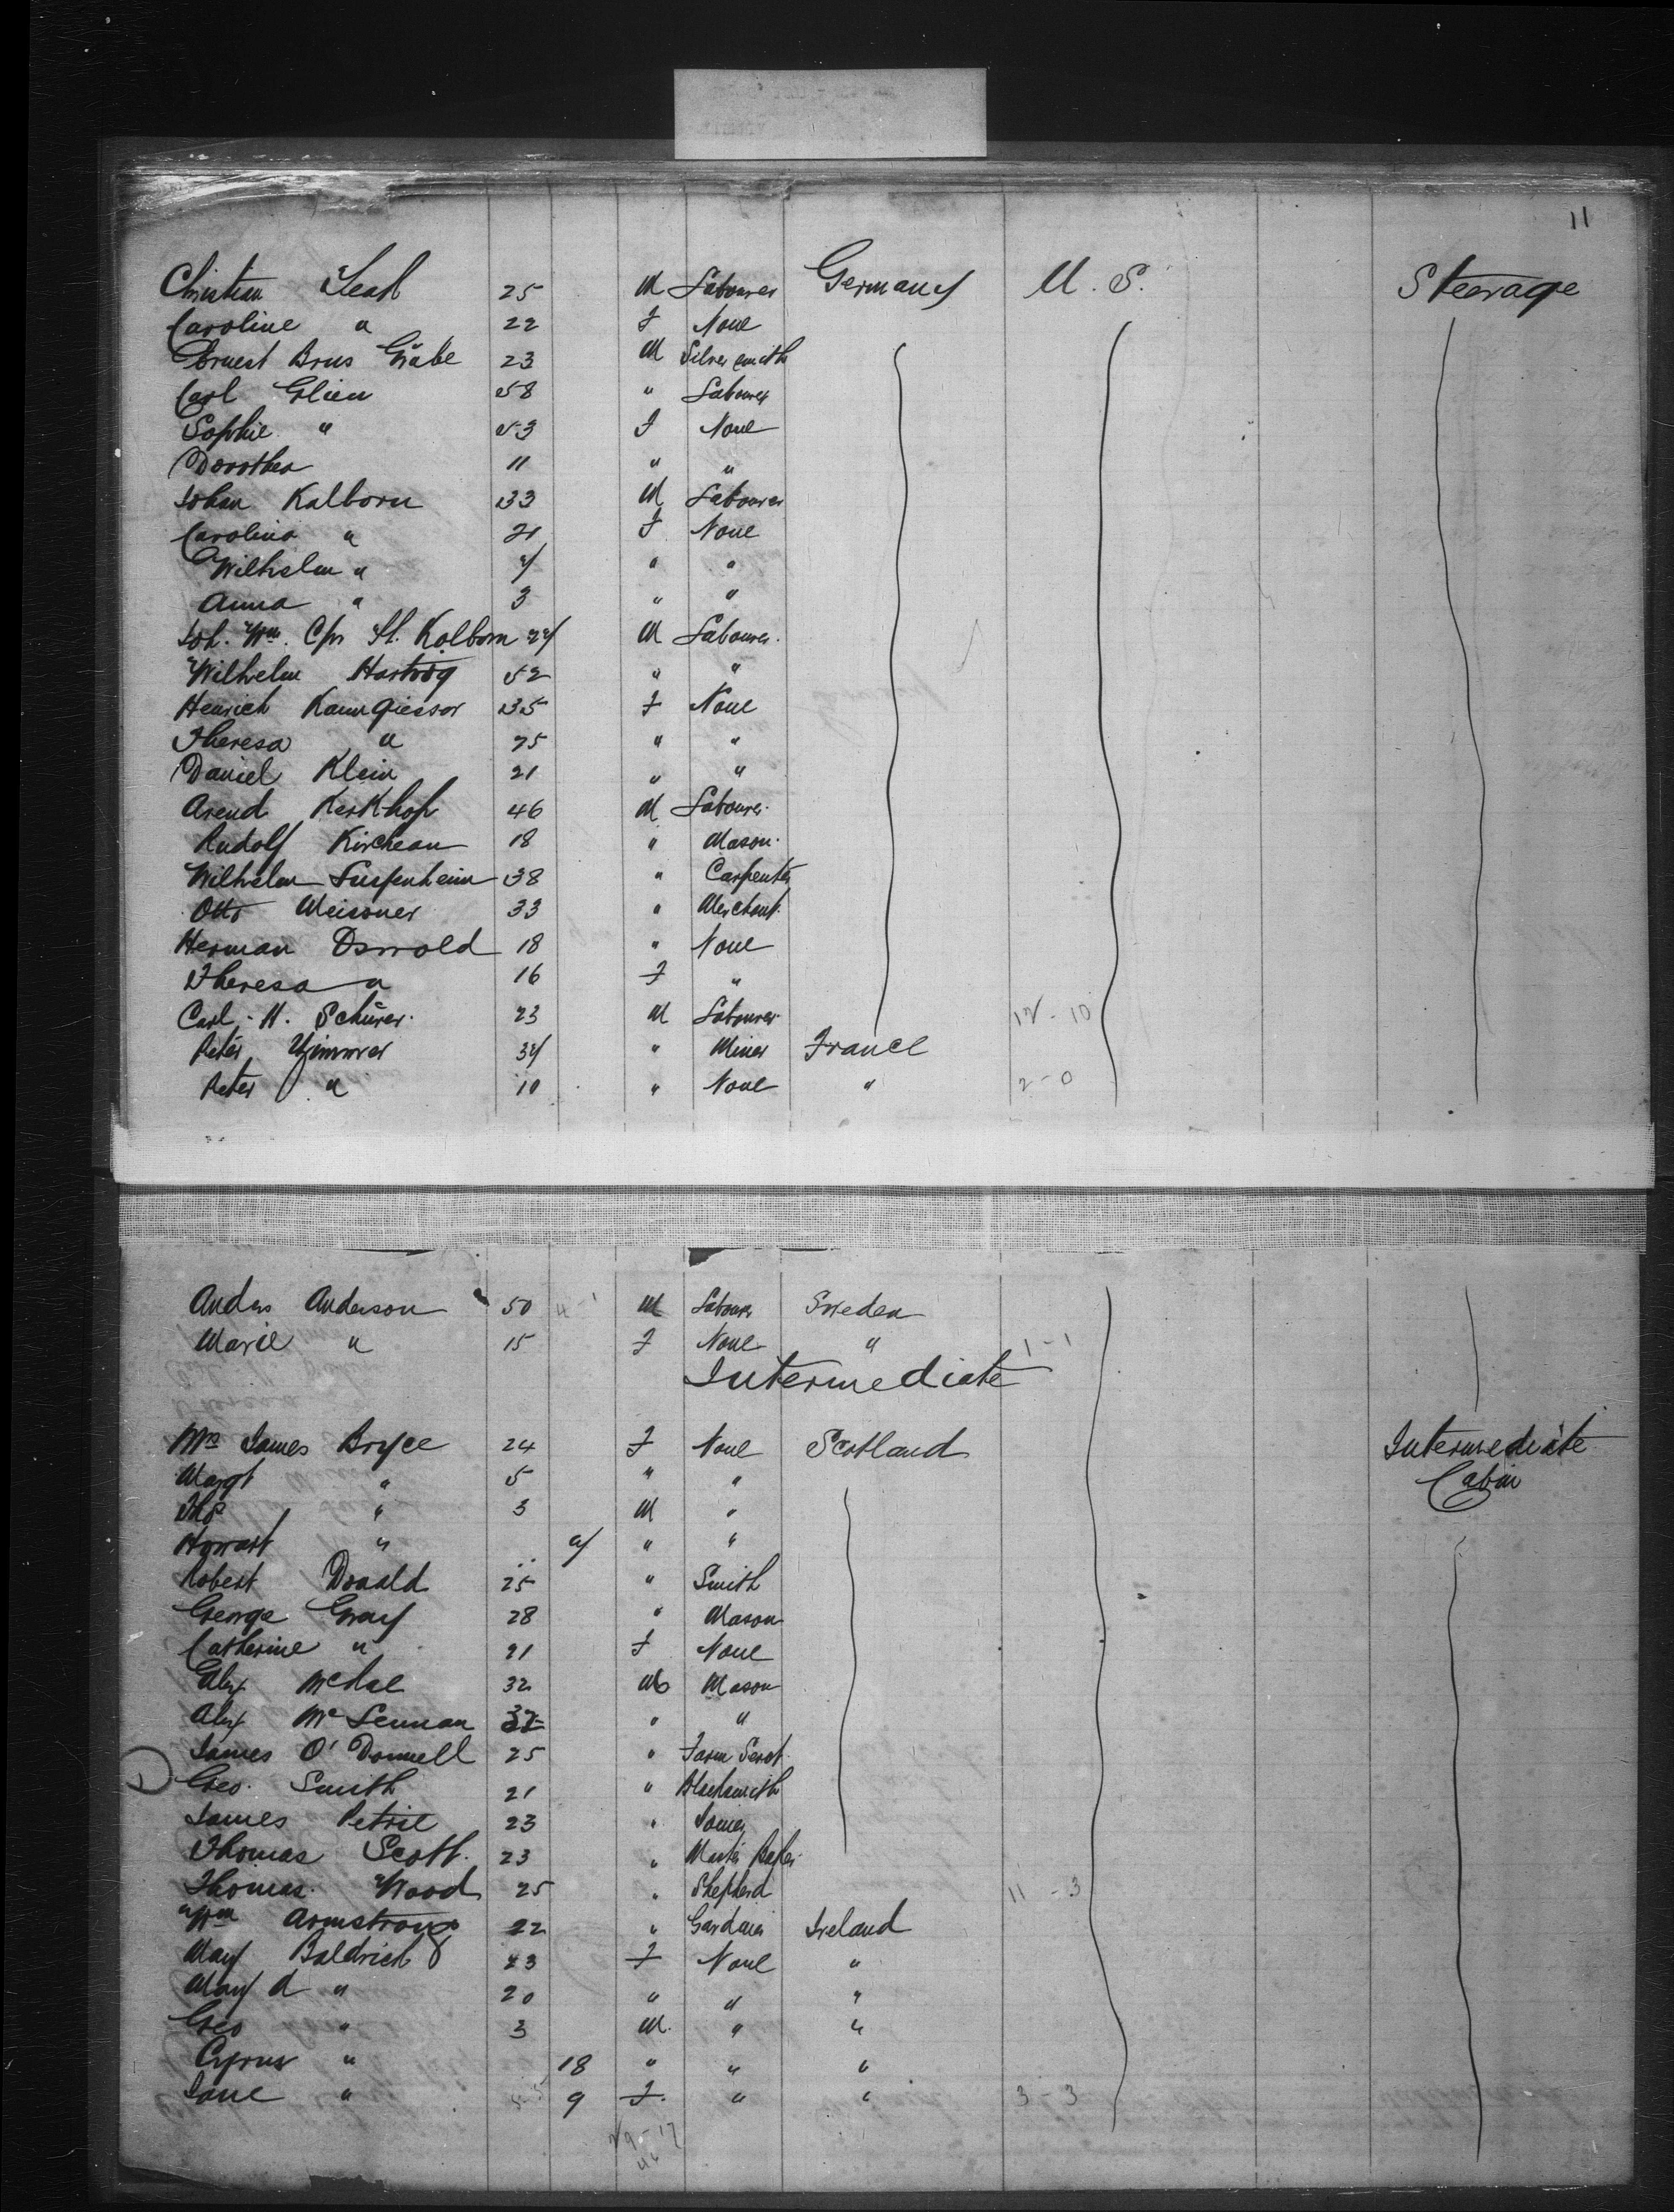 11
Christian 25 M Labourer Germany U. S. Steerage
Caroline " 22 F None
Ernest Brus Gräbe 23 M Silversmith
Carl Glien 58 " Labourer
Sophie " 53 F None
Dorothea 11 " "
Johan Kalborn 33 M Labourer
Carolina " 21 F None
Wilhelm " 4 " "
Anna " 3 " "
Joh. Wm. Chr St. Kolborn 24 M Labourer.
Wilhelm Hartwig 52 " "
Heinrich Kanngiesser 35 F None
Theresa " 25 " "
Daniel Klein 21 " "
Arend Kerkhof 46 M Labourer.
Rudolf Kirchean 18 " Mason.
Wilhelm 38 " Carpenter
Otto Meissner 33 " Merchant.
Herman Oswold 18 " None
Theresa " 16 F "
Carl. H. Schürer. 23 M Labourer. 12 - 10
Peter Zimmer 34 " Miner France
Peter " 10 " None " 2 - 0
Anders Anderson 50 M Labourer Sweden
Marie " 15 F None " 1 - 1
Intermediate
Mrs James Bryce 24 F None Scotland Intermediate
Margt " 5 " " Cabin
Thos " 3 M "
Howart " " "
Robert Donald 25 " Smith
George Gray 28 " Mason
Catherine " 21 F None
Alex McRae 32 M Mason
Alex McLennan 32 " "
James O'Donnell 25 " Farm Servt.
Geo. Smith 21 " Blacksmith
James Petrie 23 " Joiner
Thomas Scott. 23 " Master Baker
Thomas. Wood 25 " Shepherd 11 - 3
Wm Armstrong 22 " Gardner Ireland
Mary Baldrick 23 F None "
Mary A " 20 " " "
Geo " 3 M. " "
Cyrus " 18 " " "
Jane " 9 F. " " 3 - 3
29 - 17
46